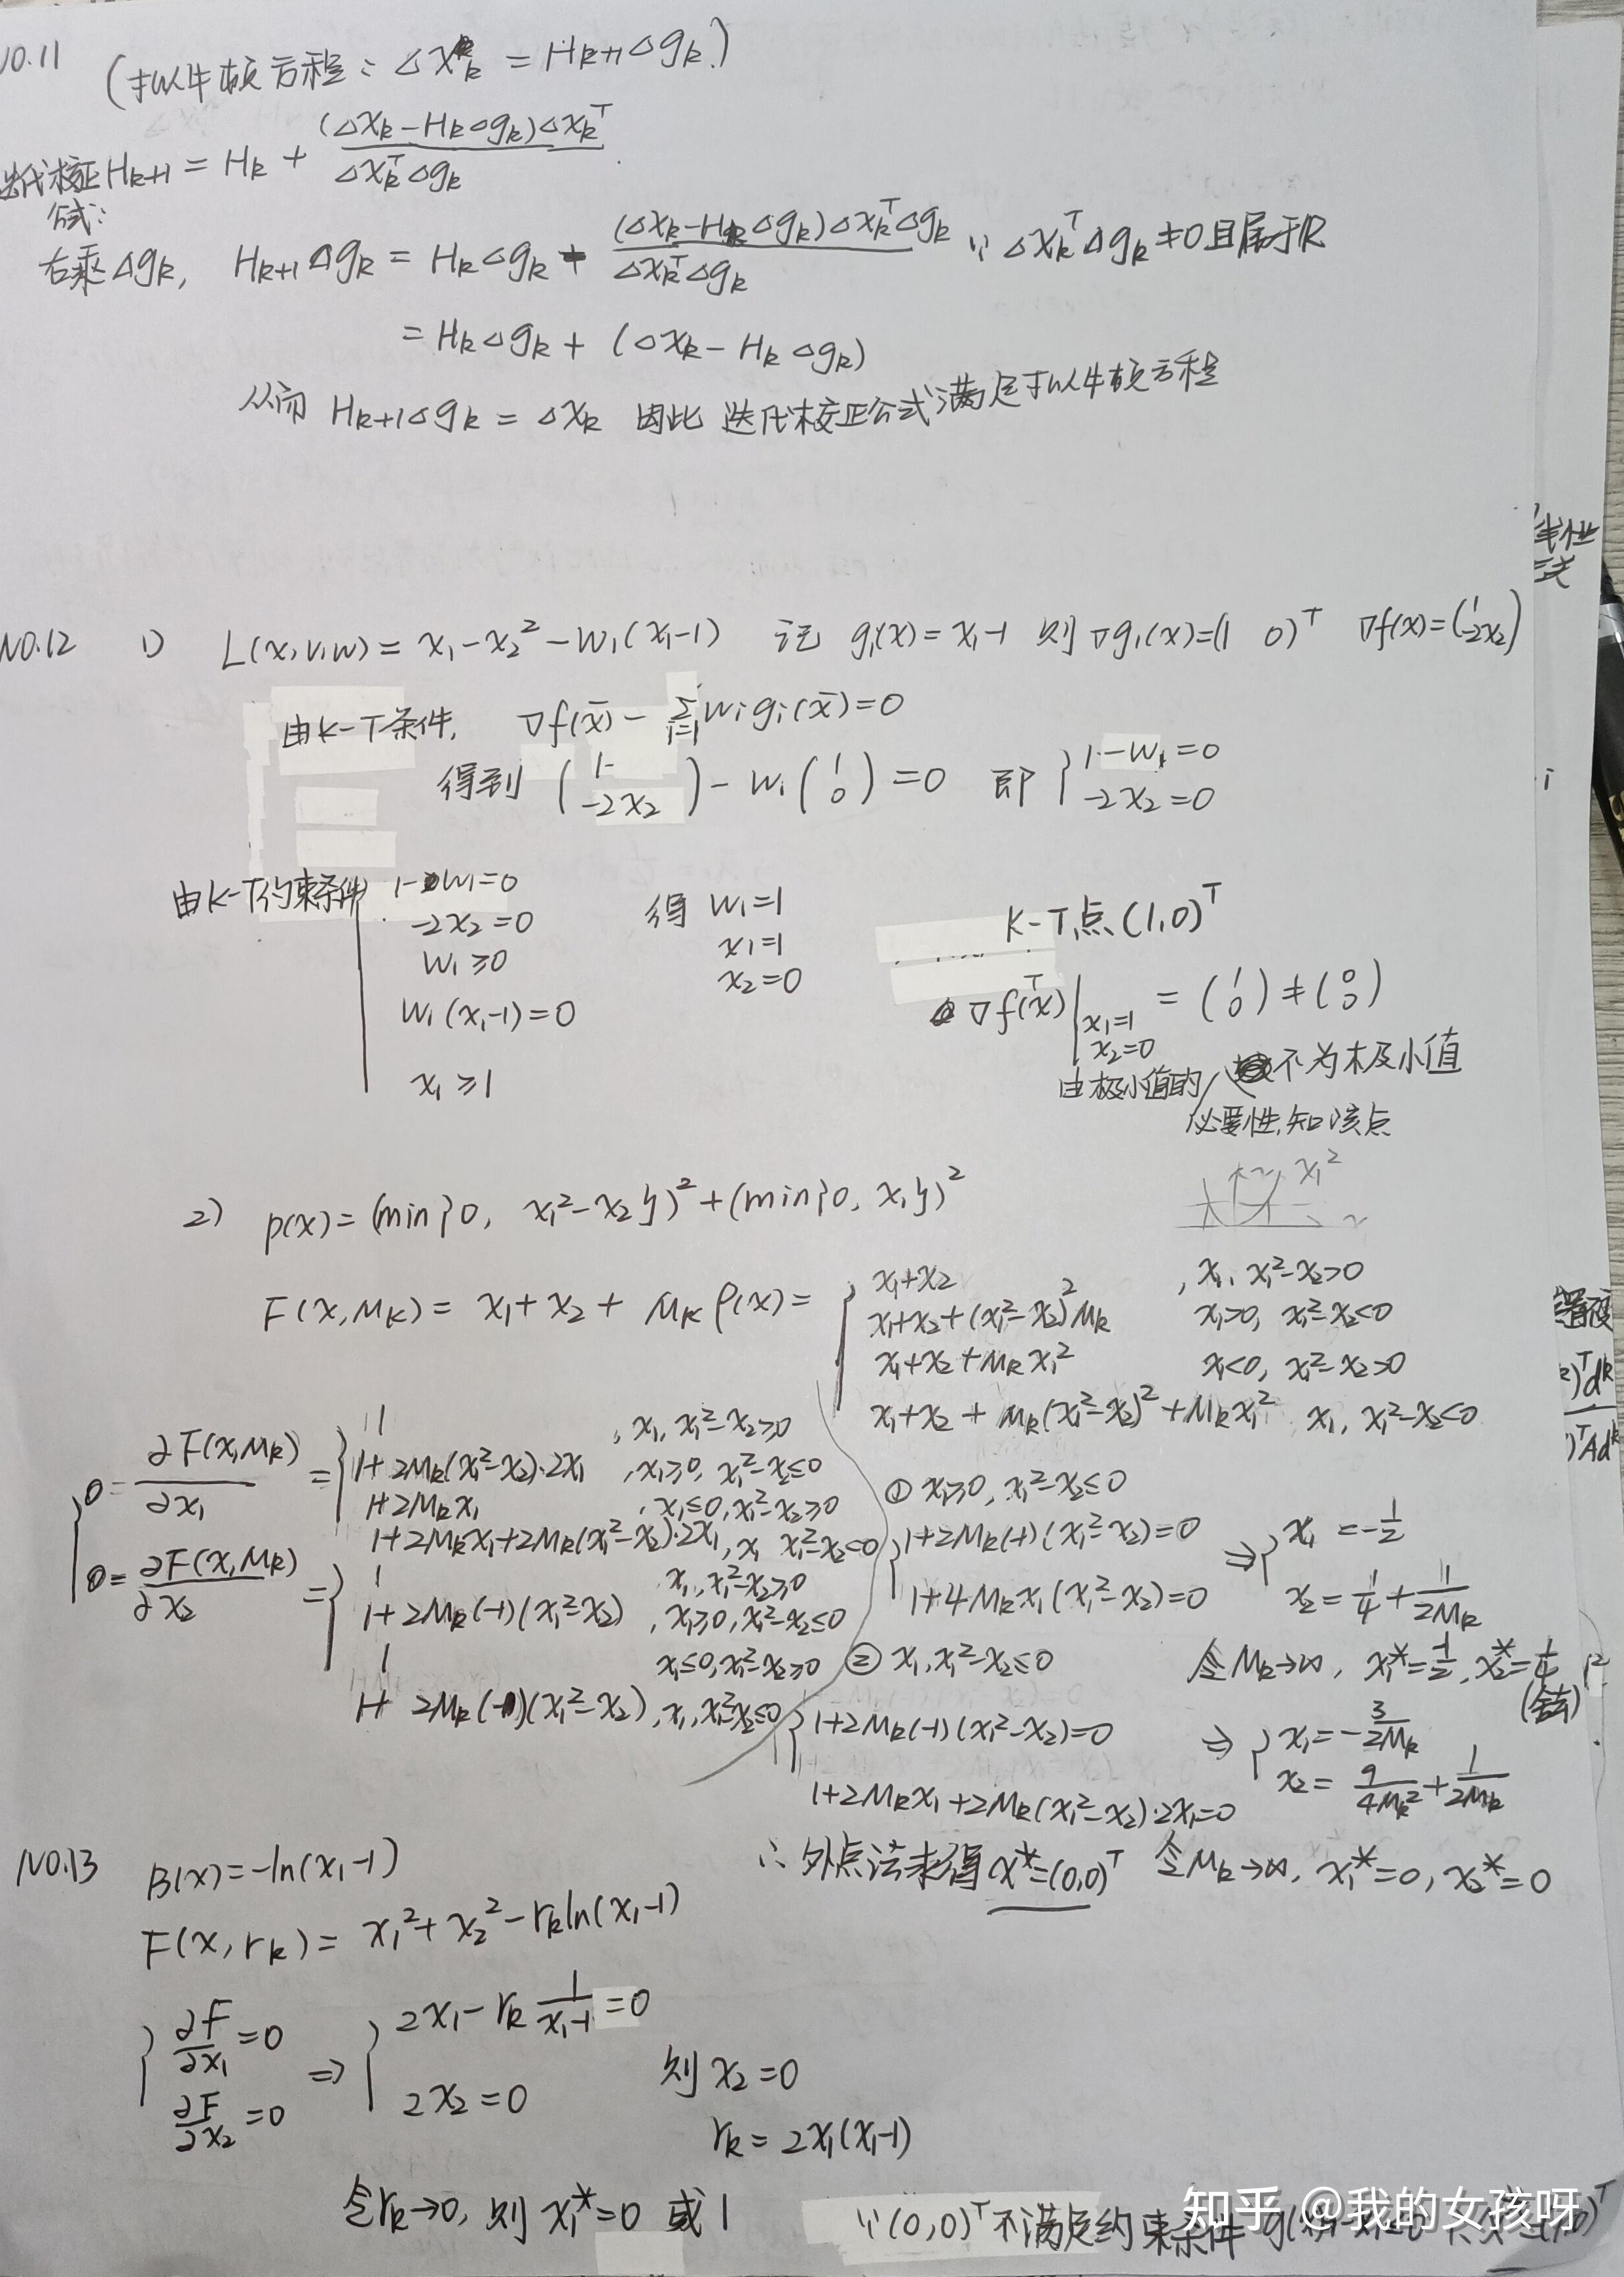 NO.11 (拟牛顿方程: △x_k = H_{k+1}△g_k)
迭代校正公式: H_{k+1} = H_k + (△x_k-H_k△g_k)△x_k^T / △x_k^T△g_k
右乘△g_k, H_{k+1}△g_k = H_k△g_k + (△x_k-H_k△g_k)△x_k^T△g_k / △x_k^T△g_k ∵ △x_k^T△g_k ≠0且属于R
= H_k△g_k + (△x_k - H_k△g_k)
从而 H_{k+1}△g_k = △x_k 因此 迭代校正公式满足拟牛顿方程
线性
二次
NO.12 1) L(x,v,w) = x₁-x₂²-w₁(x₁-1) 记 g₁(x)=x₁-1 则▽g₁(x)=(1 0)^T ▽f(x)=(1 -2x₂)
由K-T条件, ▽f(x̄) - Σ_{i=1} w_i g_i(x̄)=0
得到 (1 -2x₂) - w₁(1 0) =0 即 {1-w₁=0
-2x₂=0
由K-T约束条件 1-w₁=0
-2x₂=0
w₁≥0
w₁(x₁-1)=0
x₁≥1
得 w₁=1
x₁=1
x₂=0
K-T点(1,0)^T
▽f(x)^T|_{x₁=1 x₂=0} = (1 0) ≠ (0 0)
由极小值的必要性,知该点不为极小值
x₁²
2) p(x) = (min{0, x₁²-x₂})² + (min{0, x₁})²
F(x,M_k) = x₁+x₂ + M_k p(x) = { x₁+x₂ , x₁, x₁²-x₂>0
x₁+x₂+(x₁²-x₂)²M_k x₁>0, x₁²-x₂<0
x₁+x₂+M_k x₁² x₁<0, x₁²-x₂>0
x₁+x₂+M_k(x₁²-x₂)²+M_k x₁² x₁, x₁²-x₂<0
0=∂F(x,M_k)/∂x₁ = { 1 , x₁, x₁²-x₂≥0
1+2M_k(x₁²-x₂)·2x₁ , x₁≥0, x₁²-x₂≤0
1+2M_k x₁ , x₁≤0, x₁²-x₂≥0
1+2M_k x₁+2M_k(x₁²-x₂)·2x₁, x₁ x₁²-x₂<0
0=∂F(x,M_k)/∂x₂ = { 1 x₁, x₁²-x₂≥0
1+2M_k(-1)(x₁²-x₂) , x₁≥0, x₁²-x₂≤0
1 x₁≤0, x₁²-x₂≥0
1+ 2M_k(-1)(x₁²-x₂), x₁, x₁²-x₂≤0
① x₁≥0, x₁²-x₂≤0
{1+2M_k(-1)(x₁²-x₂)=0
1+4M_k x₁(x₁²-x₂)=0 ⇒ { x₁=-1/2
x₂=1/4+1/2M_k
令M_k→∞, x₁*=-1/2, x₂*=1/4
(舍去)
② x₁, x₁²-x₂≤0
{1+2M_k(-1)(x₁²-x₂)=0
1+2M_k x₁+2M_k(x₁²-x₂)·2x₁=0 ⇒ { x₁=-3/2M_k
x₂= 9/4M_k²+1/2M_k
∴外点法求得x*=(0,0)^T 令M_k→∞, x₁*=0, x₂*=0
NO.13 B(x)=-ln(x₁-1)
F(x,r_k)= x₁²+x₂²-r_k ln(x₁-1)
{∂F/∂x₁=0
∂F/∂x₂=0 ⇒ {2x₁-r_k 1/(x₁-1)=0
2x₂=0
则 x₂=0
r_k=2x₁(x₁-1)
令r_k→0, 则 x₁*=0 或1 ∵(0,0)^T不满足约束条件
知乎 @我的女孩呀